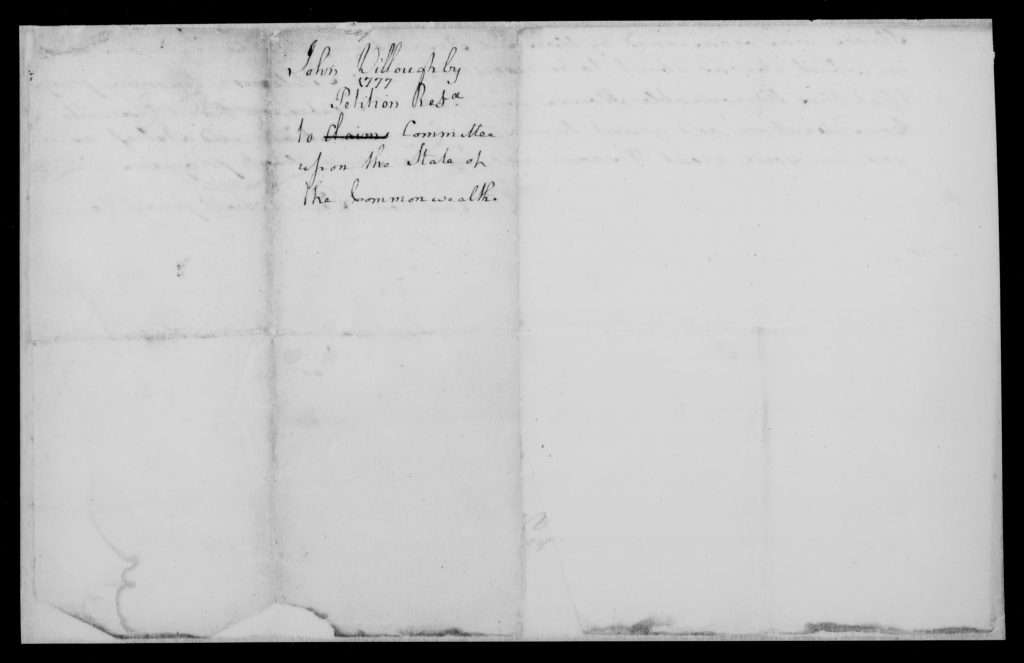 John Willoughby
1777
Petition Refd
to Claims Committee
upon the State of
the Commonwealth.